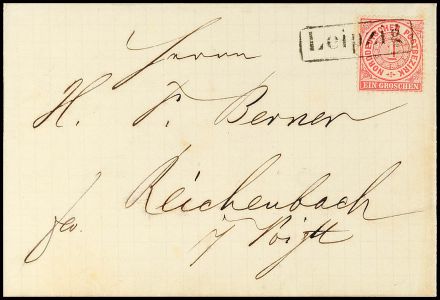 Leipzig
NORDDEUTSCHER POSTBEZIRK
1
EIN GROSCHEN
Herrn
H. F. Berner
fco. Reichenbach
i/Voigtl